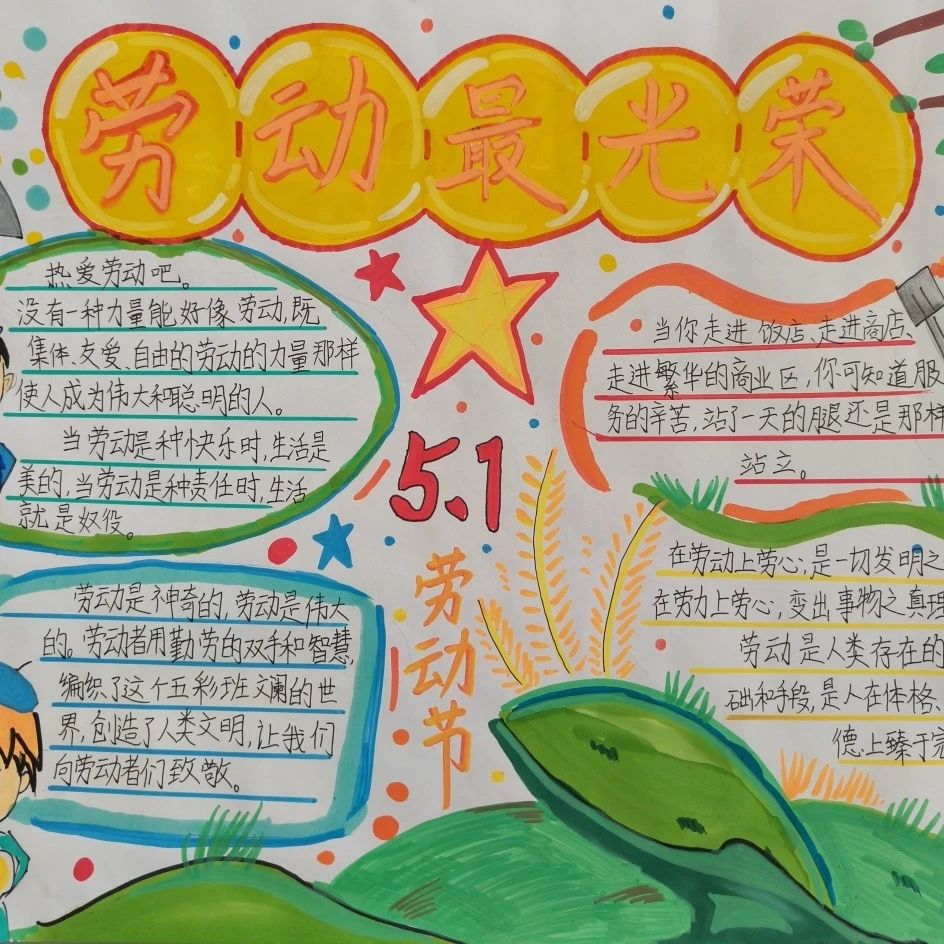 劳动最光荣
热爱劳动吧。
没有一种力量能好像劳动,既
集体、友爱、自由的劳动的力量那样
使人成为伟大和聪明的人。
当劳动是种快乐时,生活是
美的,当劳动是种责任时,生活
就是奴役。
5.1
劳动节
当你走进饭店、走进商店、
走进繁华的商业区,你可知道服
务的辛苦,站了一天的腿还是那样
站立。
劳动是神奇的,劳动是伟大
的。劳动者用勤劳的双手和智慧,
编织了这个五彩班斓的世
界,创造了人类文明,让我们
向劳动者们致敬。
在劳动上劳心,是一切发明之
在劳力上劳心,变出事物之真理
劳动是人类存在的
础和手段,是人在体格、
德上臻于完